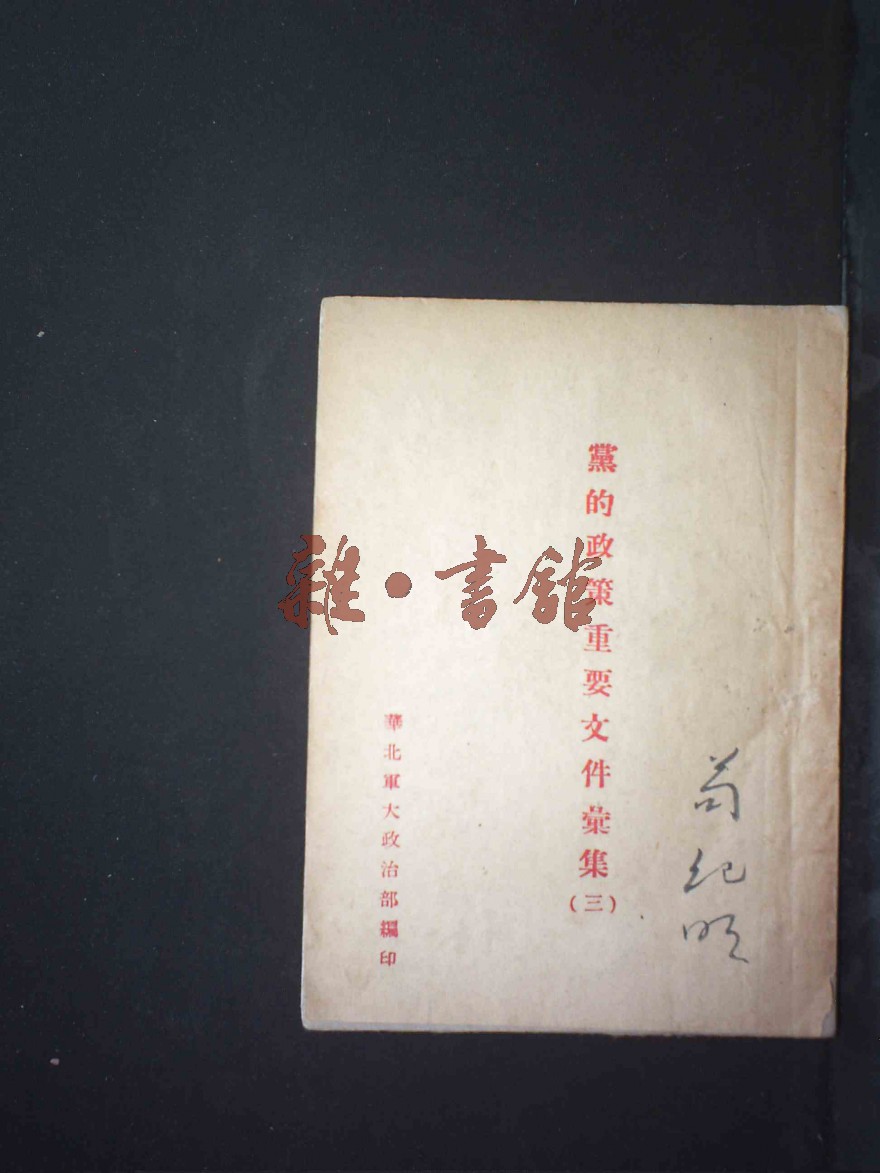 苟紀明
黨的政策重要文件彙集(三)
華北軍大政治部編印
雜·書館